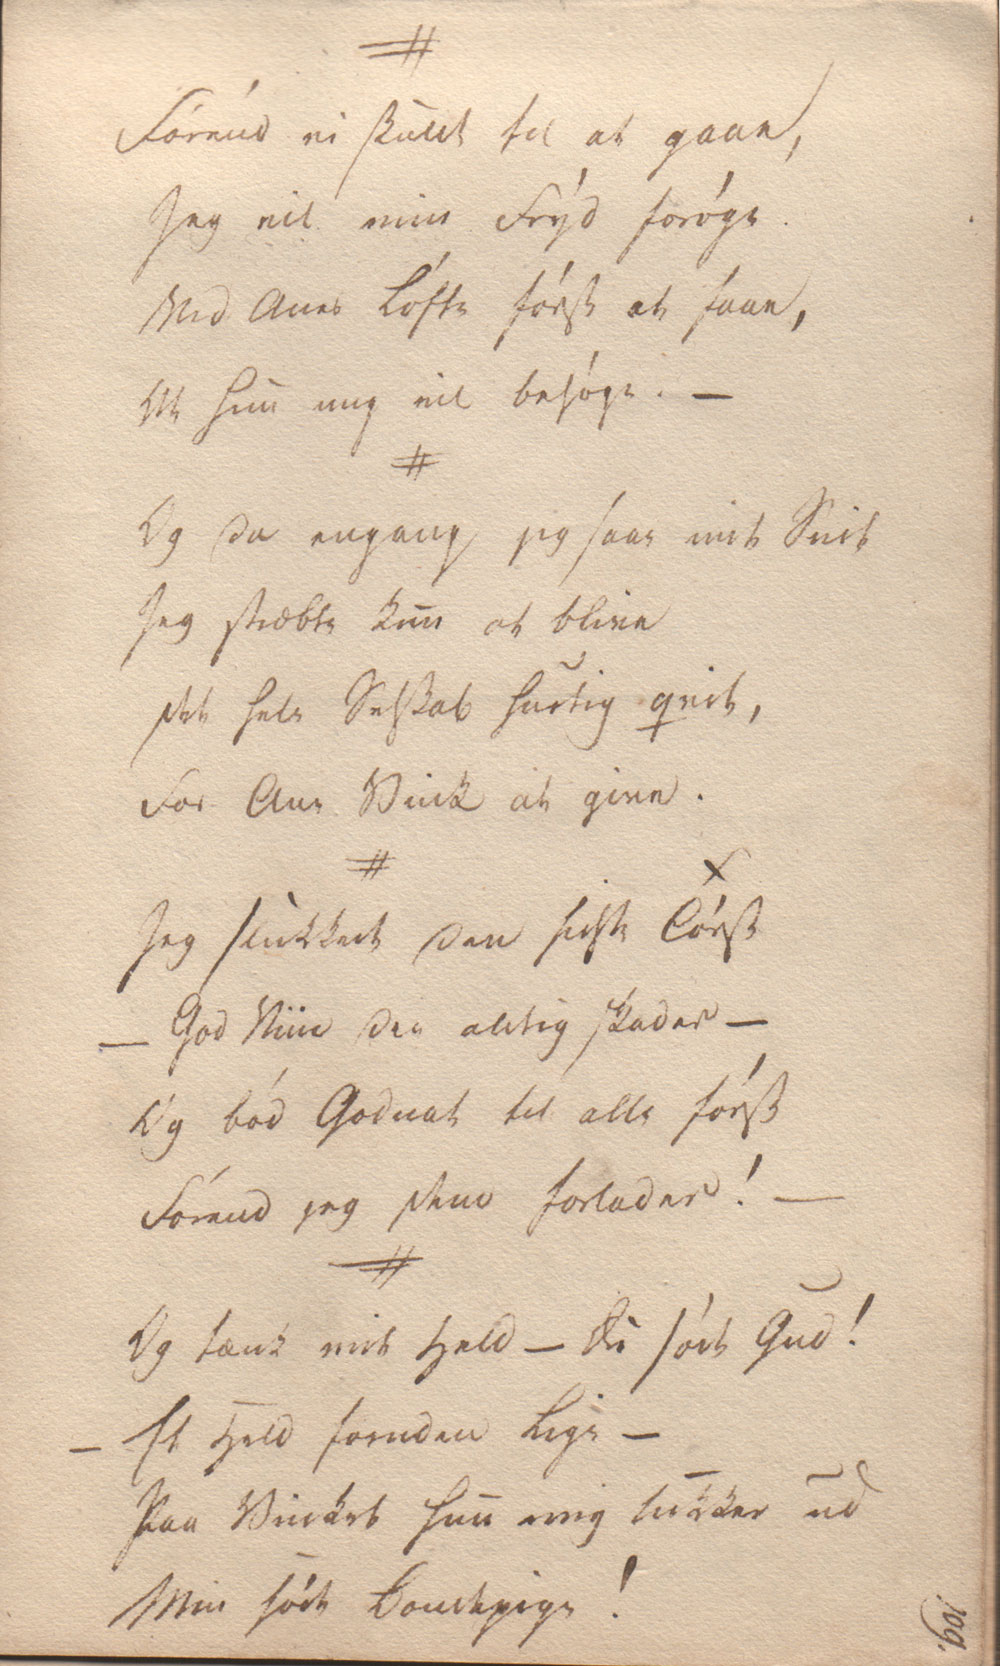 Förend vi skulde til at gaae,
Jeg vil min Frÿd forøge.
Ved Anes Løfte først at faae,
At hun mig vil besøge. —
Og da engang jeg saae mit Snit
Jeg stræbte kun at blive
Det hele Selskab hurtig qvit,
For Ane Vink at give.
Jeg slukket den sidste Tørst
— God Viin den altiig skader —
Og bød Godnat til alle først
Førend jeg dem forlader! —
Og tænk mit Held — du søde Gud!
— Et Held foruden Lige —
Paa Vinket hun mig lukker ud
Min søde Dandsepige!
109.